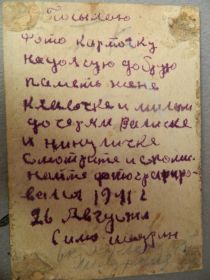 Посылаю
Фото карточку
на долгую добрую
память жене
Клавочке и милым
дочерям Валичке
и Ниничке
Смотрите и вспоми
найте фотографиро
вался 1941 г
26 Августа
Симо